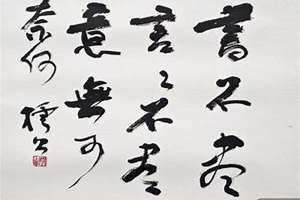 書不盡
言〻不盡
意無可
奈何